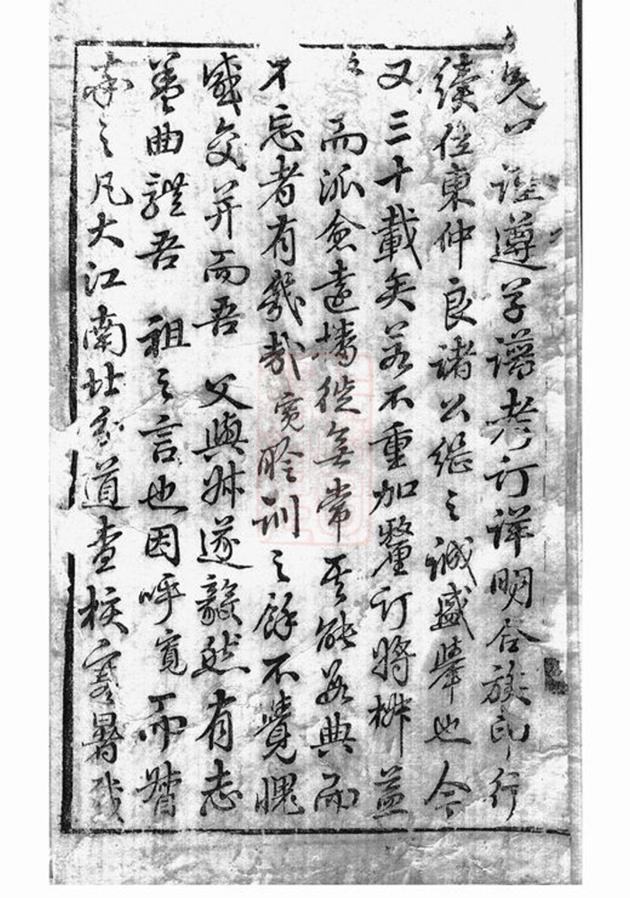 先公謹遵學譜考訂詳明合族印行
續往東仲良諸公繼之誠盛舉也今
又三十載矣若不重加釐訂將椒益
之而派愈遠播徙無常其能數典而
不忘者有幾哉寬聆訓之餘不覺愧
感交并而吾 父與叔遂毅然有志
蓋曲體吾 祖之言也因呼寬而督
率之凡大江南北分道查核寒暑幾